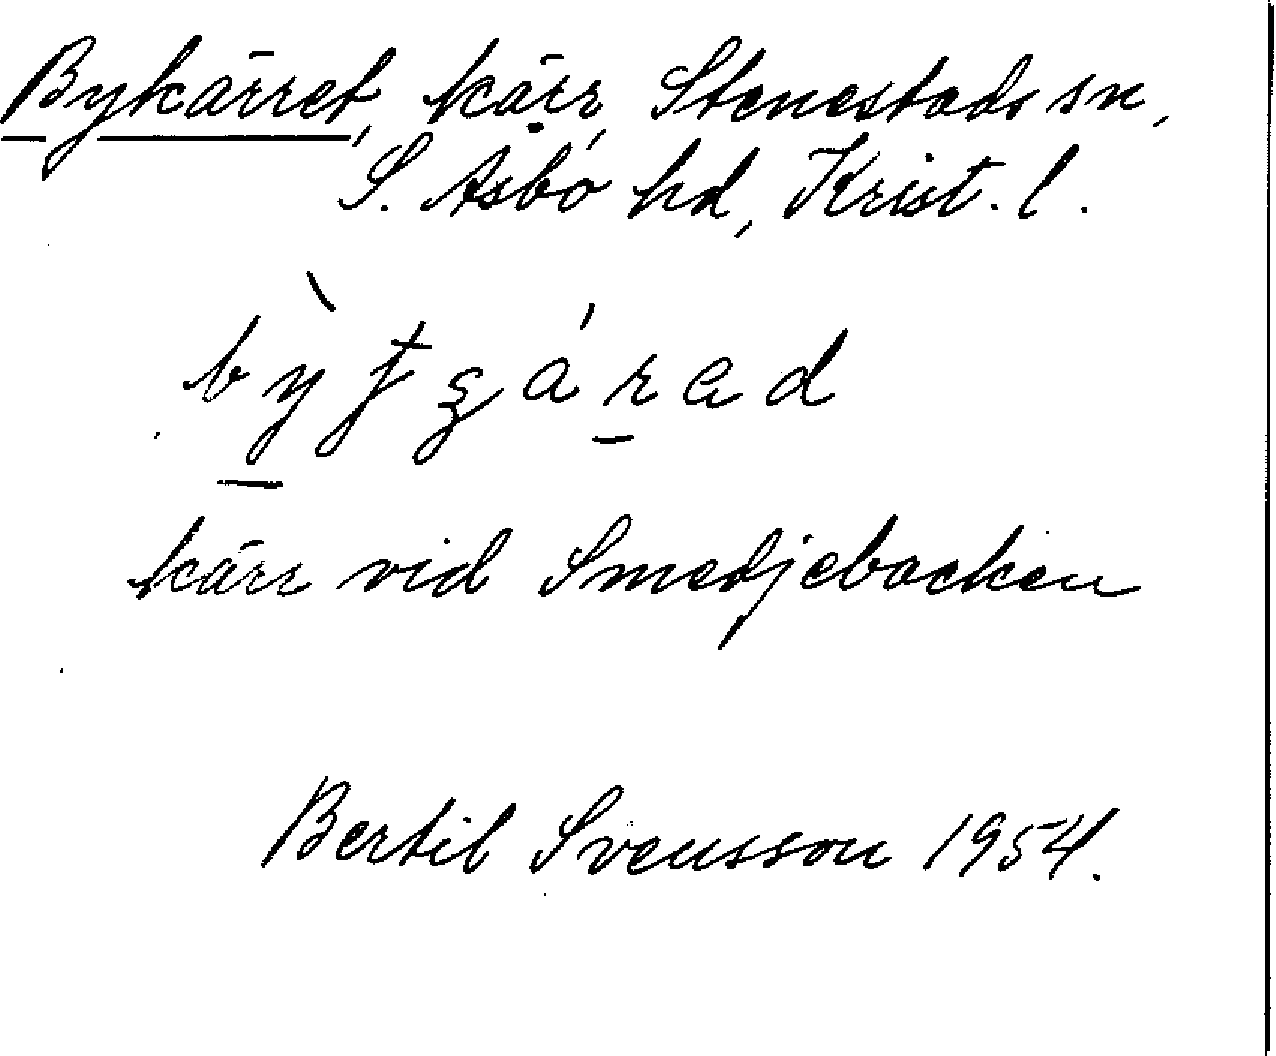 Bykärret, kärr, Stenestads sn,
S. Åsbo hd, Krist. l.
kärr vid Smedjebacken
Bertil Svensson 1954.